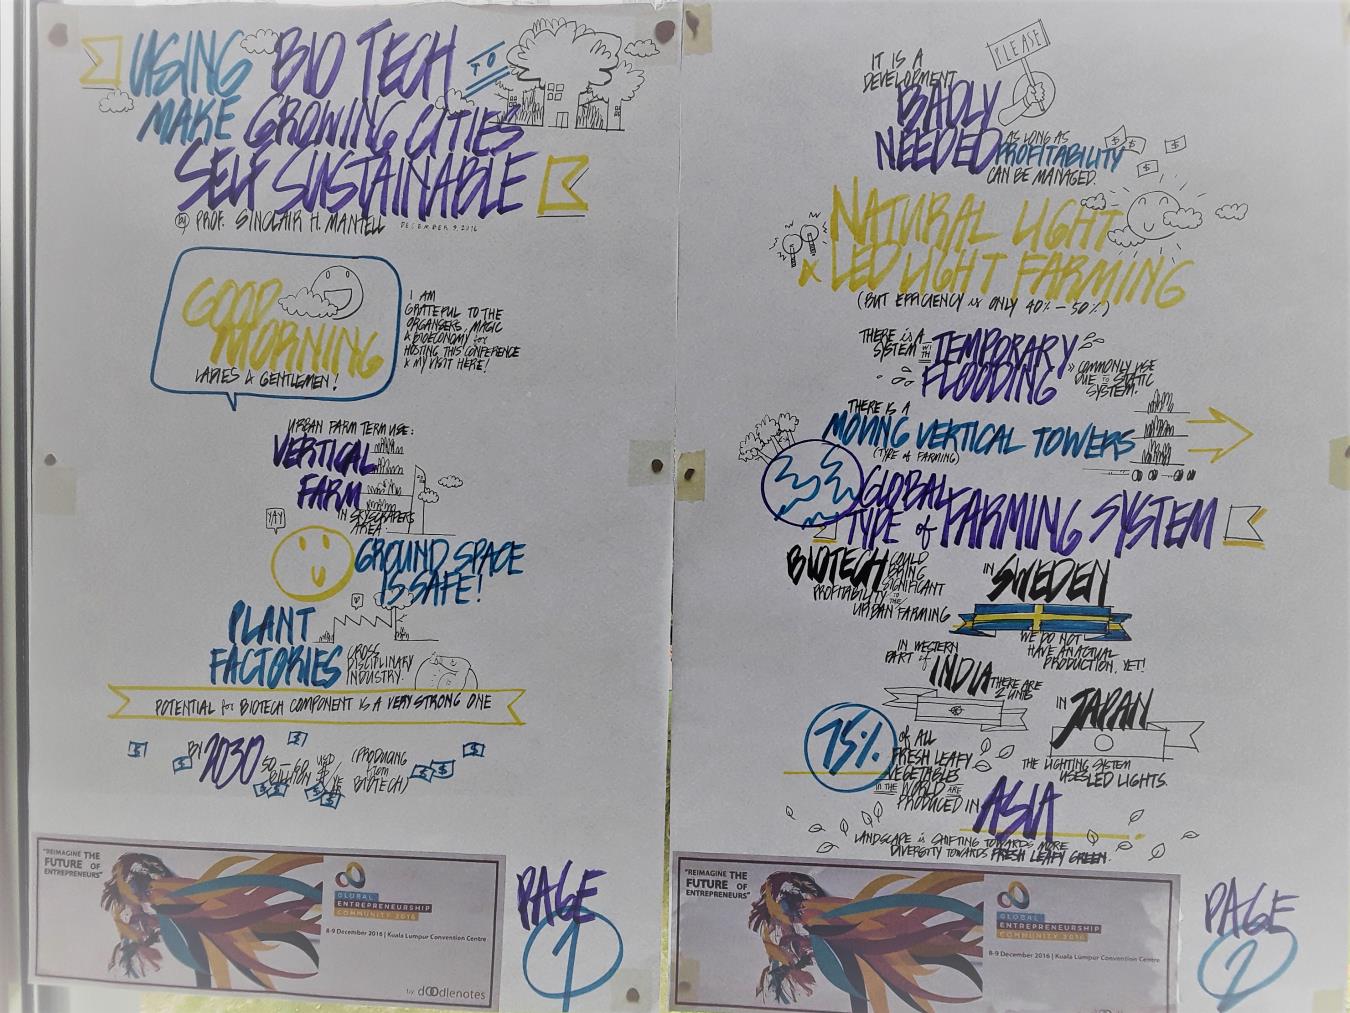 USING BIO TECH TO
MAKE GROWING CITIES
SELF SUSTAINABLE
by PROF. SINCLAIR H. MANTELL DECEMBER 9, 2016
GOOD
MORNING
LADIES & GENTLEMEN!
I AM
GRATEFUL TO THE
ORGANSERS, MAGIC
& BIOECONOMY for
HOSTING THIS CONFERENCE
& MY VISIT HERE!
URBAN FARM TERM USE:
VERTICAL
FARM
IN SKYSCRAPERS
AREA.
YAY
GROUND SPACE
IS SAFE!
PLANT
FACTORIES
CROSS
DISCIPLINARY
INDUSTRY.
POTENTIAL for BIOTECH COMPONENT IS A VERY STRONG ONE
BY 2030 50 – 60 USD
BILLION $/YE
(PRODUCING
from
BIOTECH)
"REIMAGINE THE
FUTURE OF
ENTREPRENEURS"
GLOBAL
ENTREPRENEURSHIP
COMMUNITY 2016
8-9 December 2016 | Kuala Lumpur Convention Centre
by dOOdlenotes
PAGE
1
PLEASE
IT IS A
DEVELOPMENT
BADLY
NEEDED
AS LONG AS
PROFITABILITY
CAN BE MANAGED.
NATURAL LIGHT
& LED LIGHT FARMING
(BUT EFFICIENCY is ONLY 40% – 50%)
THERE is A
SYSTEM WITH
TEMPORARY
FLOODING
» COMMONLY USE
DUE TO STATIC
SYSTEM.
THERE IS A
MOVING VERTICAL TOWERS
(TYPE of FARMING)
GLOBAL
TYPE of FARMING SYSTEM
BIOTECH COULD
BRING
SIGNIFICANT
PROFITABILITY to THE
URBAN FARMING
IN SWEDEN
WE DO NOT
HAVE AN ACTUAL
PRODUCTION, YET!
IN WESTERN
PART of
INDIA THERE ARE
2 UNITS
IN JAPAN
THE LIGHTING SYSTEM
USES LED LIGHTS.
75%
of ALL
FRESH LEAFY
VEGETABLES
IN THE WORLD ARE
PRODUCED IN ASIA
LANDSCAPE is SHIFTING TOWARDS MORE
DIVERSITY TOWARDS FRESH LEAFY GREEN.
"REIMAGINE THE
FUTURE OF
ENTREPRENEURS"
GLOBAL
ENTREPRENEURSHIP
COMMUNITY 2016
8-9 December 2016 | Kuala Lumpur Convention Centre
PAGE
2